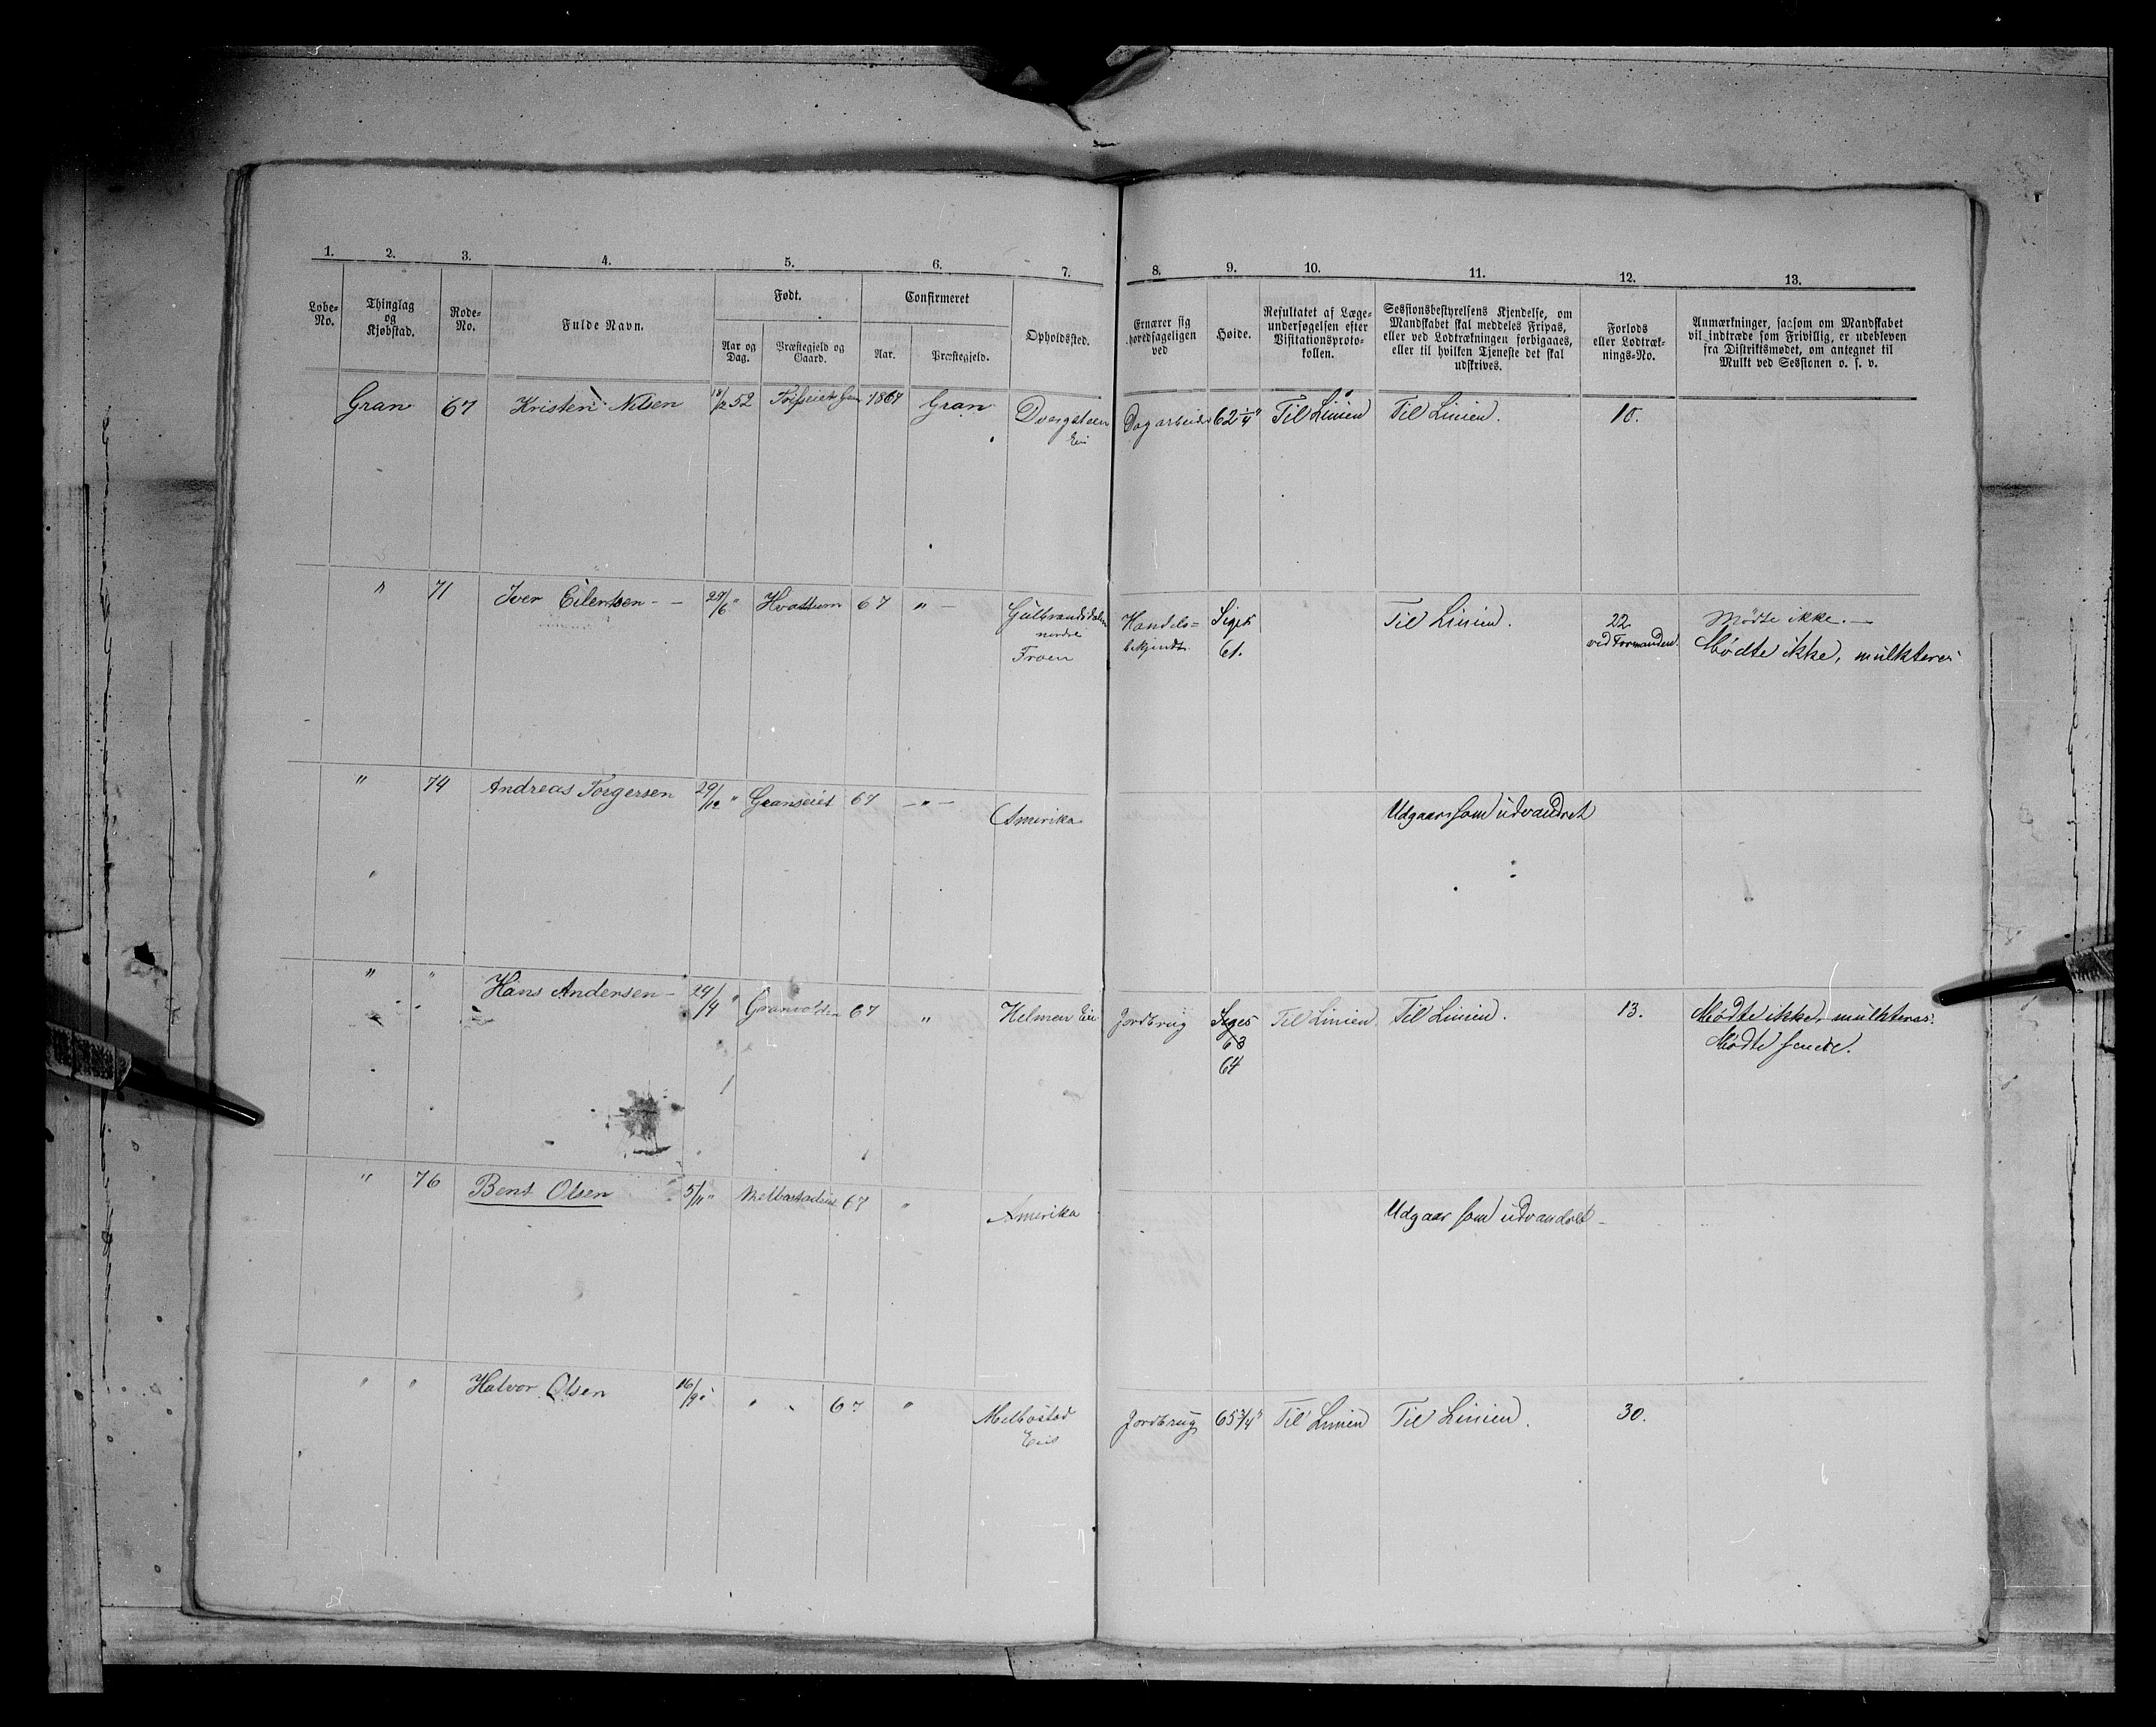 1. 2. 3. 4. 5. 6. 7. 8. 9. 10. 11. 12. 13.
Løbe-No.
Thinglag og Kjøbstad.
Rode-No.
Fulde Navn.
Født.
Aar og Dag.
Præstegjeld og Gaard.
Confirmeret
Aar.
Præstegjeld.
Opholdssted.
Ernærer sig hovedsageligen ved
Høide.
Resultatet af Læge-undersøgelsen efter Visitationsproto-kollen.
Sessionsbestyrelsens Kjendelse, om Mandskabet skal meddeles Fripas, eller ved Lodtrækningen forbigaaes, eller til hvilken Tjeneste det skal udskrives.
Forlods eller Lodtræk-nings-No.
Anmærkninger, saasom om Mandskabet vil indtræde som Frivillig, er udebleven fra Distriktsmødet, om antegnet til Mulkt ved Sessionen o. s. v.
Gran 67 Kristen Nilsen 52 1867 Gran Dvergsteen Eie Dagarbeider 62 1/4" Til Linien Til Linien. 10.
" 71 Iver Eilertsen - - 29/6 " Hvattum 67 " - Gulbrandsdalen Handels= Siges Til Linien. 22 Mødte ikke. -
nordre Froen bekjendt. 61. ved Formanden. Mødte ikke, mulkteres
" 74 Andreas Torgersen 29/12 " Granseiet 67 - " - Amerika Udgaar som udvandret
" " Hans Andersen - 29/4 " Granvolden 67 " Helmen Eie Jordbrug Siges Til Linien. Til Linien. 13. Mødte ikke, mulkteres.
63 Mødte senere.
64
" 76 Bent Olsen 5/11 " Melbostadeiet 67 " Amerika Udgaar som udvandret -
" " Halvor Olsen 16/9 " " 67 " Melbostad Jordbrug 65 3/4" Til Linien Til Linien. 30.
Eie